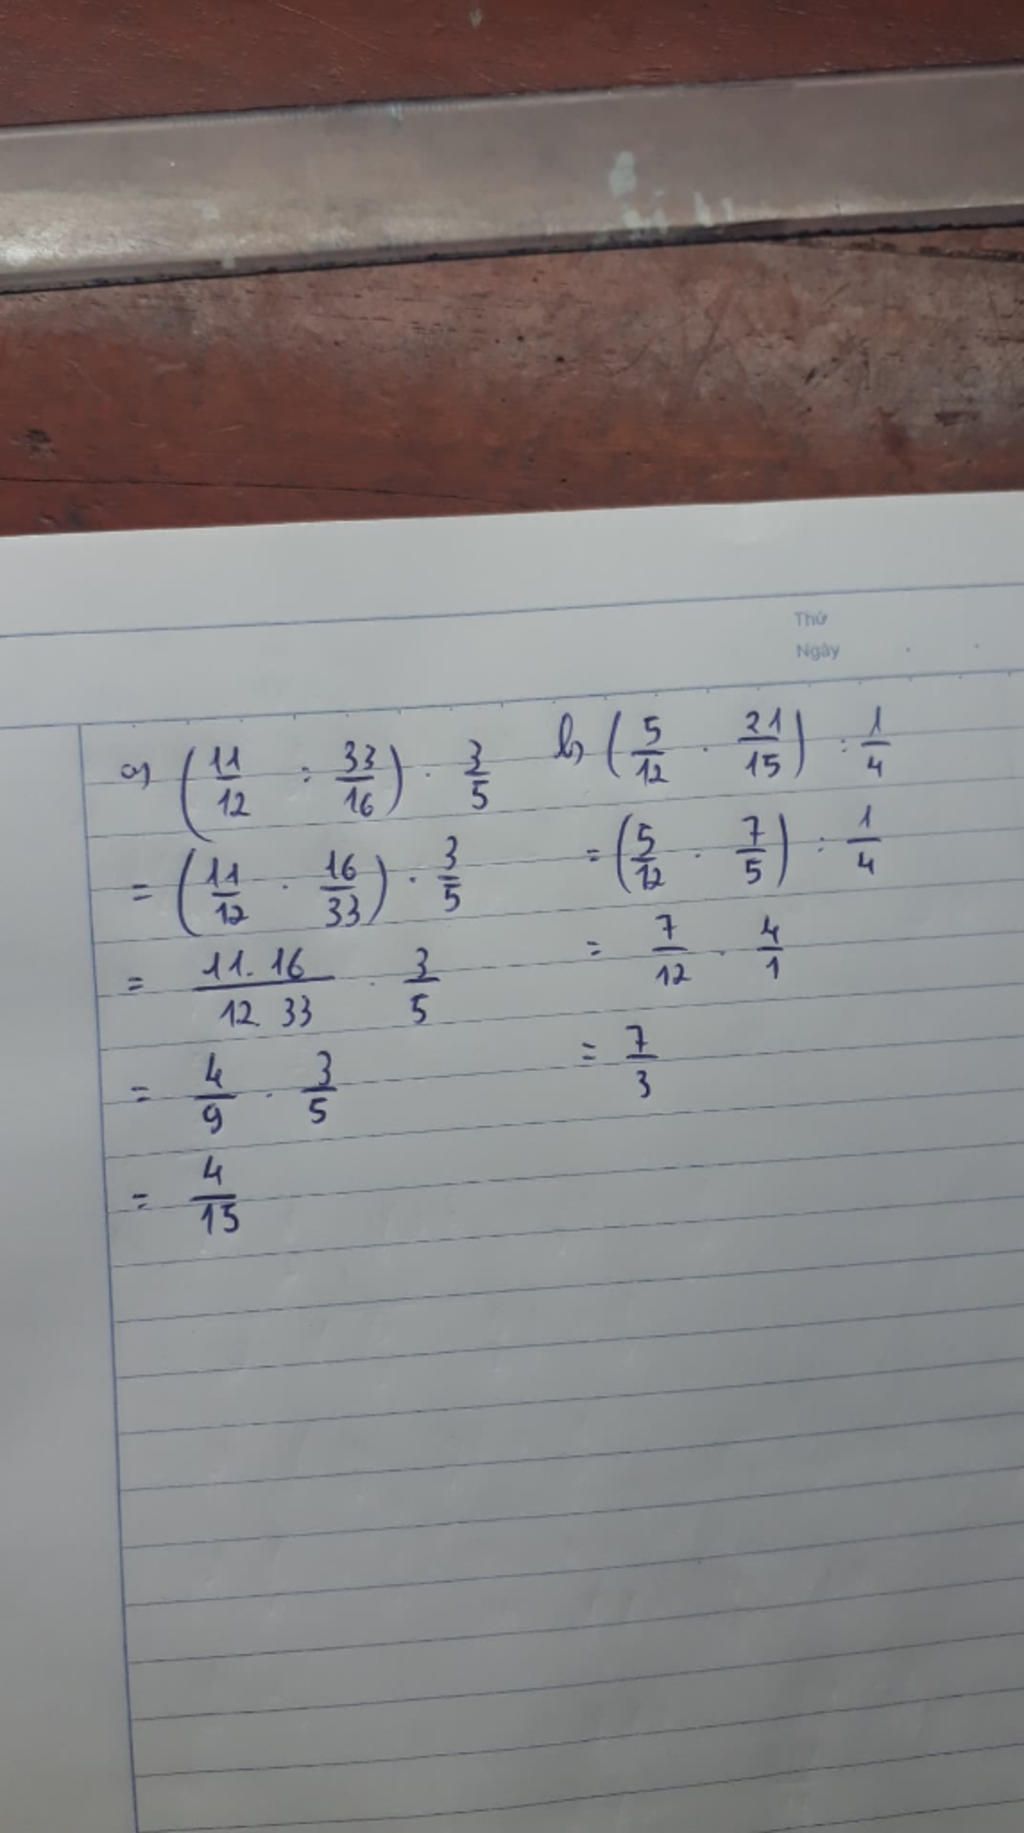 Thứ
Ngày
a) (11/12 : 33/16) . 3/5
= (11/12 . 16/33) . 3/5
= 11. 16/12. 33 . 3/5
= 4/9 . 3/5
= 4/15
b) (5/12 . 21/15) : 1/4
= (5/12 . 7/5) : 1/4
= 7/12 . 4/1
= 7/3